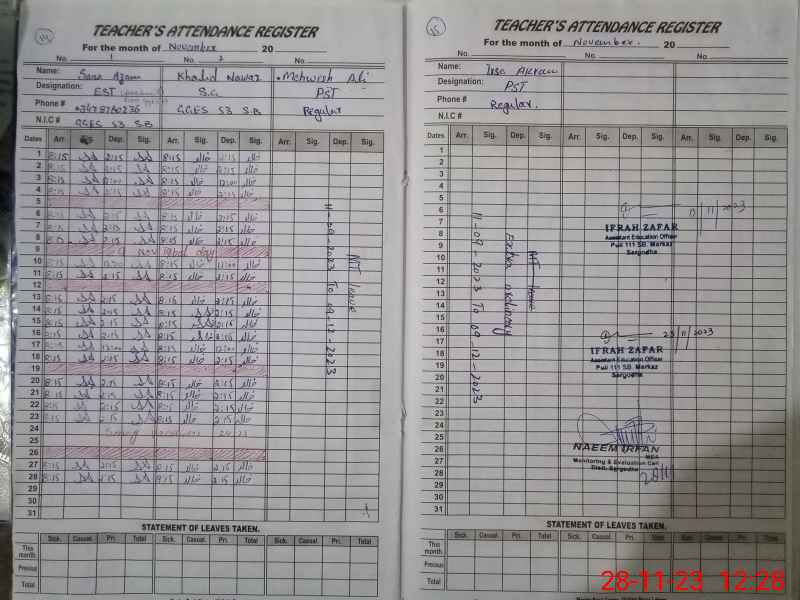 TEACHER'S ATTENDANCE REGISTER
For the month of November 20
No. 1 No. 2 No.
Name: Sana Azam Khalid Nawaz Mehwish Ali
Designation: EST S.C. PST
Phone # Regular
N.I.C # GGES 53 S.B GGES 53 S.B
Dates Arr. Sig. Dep. Sig. Arr. Sig. Dep. Sig. Arr. Sig. Dep. Sig.
1 8:15 2:15 8:15 خالد 2:15 خالد
2 8:15 2:15 8:15 خالد 2:15 خالد
3 8:15 12:00 8:15 خالد 12:00 خالد
4 8:15 2:15 8:15 خالد 2:15 خالد
5
6 8:15 2:15 8:15 خالد 2:15 خالد
7 8:15 2:15 8:15 خالد 2:15 خالد
8 8:15 2:15 8:15 خالد 2:15 خالد
9 Iqbal day
10 8:15 12:00 8:15 خالد 12:00 خالد
11 8:15 2:15 8:15 خالد 2:15 خالد
12
13 8:15 2:15 8:15 خالد 2:15 خالد
14 8:15 2:15 8:15 2:15 خالد
15 8:15 2:15 8:15 2:15 خالد
16 8:15 2:15 8:15 2:15 خالد
17 8:15 12:00 8:15 خالد 12:00 خالد
18 8:15 2:15 8:15 خالد 2:15 خالد
19
20 8:15 2:15 8:15 خالد 2:15 خالد
21 8:15 2:15 8:15 خالد 2:15 خالد
22 8:15 2:15 8:15 خالد 2:15 خالد
23 8:15 2:15 8:15 خالد 2:15 خالد
24
25
26
27 8:15 2:15 8:15 خالد 2:15 خالد
28 8:15 2:15 8:15 خالد 2:15 خالد
29
30
31
11-09-2023 To 09-12-2023
STATEMENT OF LEAVES TAKEN.
Sick. Casual. Pri. Total Sick. Casual. Pri. Total Sick. Casual. Pri. Total
This month
Previous
Total
TEACHER'S ATTENDANCE REGISTER
For the month of November. 20
No. No. No.
Name: Akram
Designation: PST
Phone # Regular.
N.I.C #
Dates Arr. Sig. Dep. Sig. Arr. Sig. Dep. Sig. Arr. Sig. Dep. Sig.
1
2
3
4
5
6
7
8
9
10
11
12
13
14
15
16
17
18
19
20
21
22
23
24
25
26
27
28
29
30
31
11-09-2023 To 09-12-2023
Extra ordinary
11/2023
IFRAH ZAFAR
Assistant Education Officer
Puli 111 SB. Markaz
Sargodha
23/11/2023
IFRAH ZAFAR
Assistant Education Officer
Puli 111 SB. Markaz
Sargodha
NAEEM IRFAN
MEA
Monitoring & Evaluation Cell
Distt. Sargodha
28/11
STATEMENT OF LEAVES TAKEN.
Sick. Casual. Pri. Total Sick. Casual. Pri. Total Sick. Casual. Pri. Total
This month
Previous
Total
28-11-23 12:28